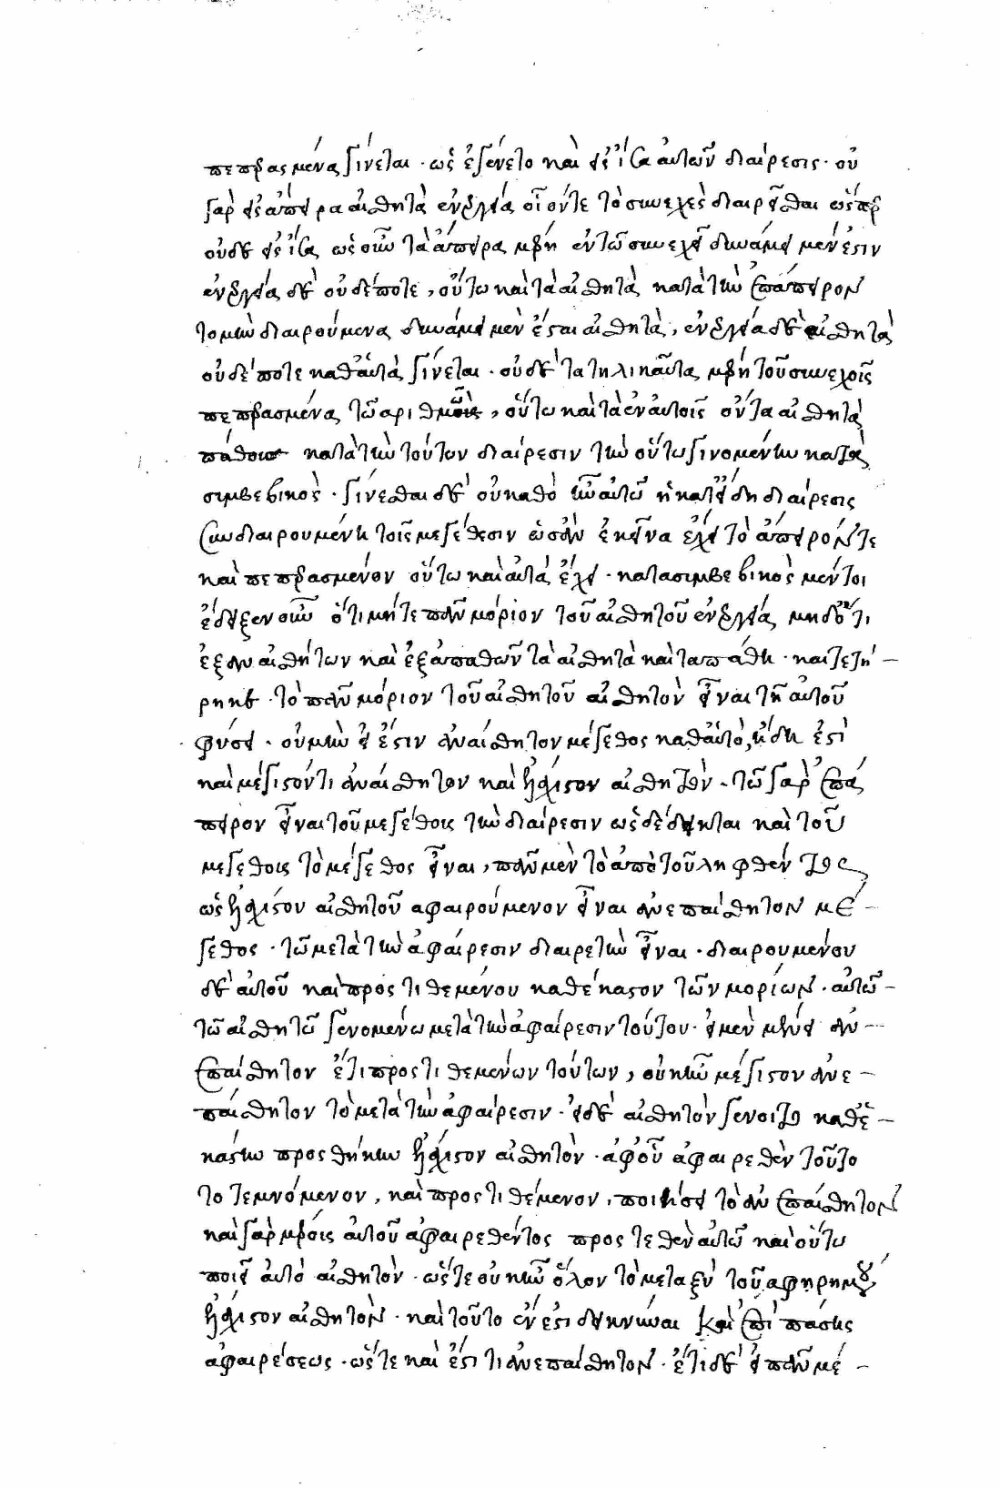 πεπερασμένα γίνεται · ὡς ἐγένετο καὶ εἰ εἰς ἴσα αὐτῶν διαίρεσις · οὐ
γὰρ εἰς ἄπειρα αἰσθητὰ ἐνεργείᾳ οἷόν τε τὸ συνεχὲς διαιρεῖσθαι ὥσπερ
οὐδὲ εἰς ἴσα, ὡς οὖν τὰ ἄπειρα μέρη ἐν τῶ συνεχεῖ δυνάμει μέν ἐστιν
ἐνεργείᾳ δὲ οὐδέποτε, οὕτω καὶ τὰ αἰσθητὰ κατὰ τὴν ἐπ' ἄπειρον
τομὴν διαιρούμενα δυνάμει μὲν ἔσται αἰσθητὰ, ἐνεργείᾳ δὲ αἰσθητὰ
οὐδέποτε καθ' αὑτὰ γίνεται · οὐδὲ τὰ τηλικαῦτα μέρη τοῦ συνεχοῦς
πεπερασμένα τῶ ἀριθμῶ, οὕτω καὶ τὰ ἐν αὐτοῖς ὄντα αἰσθητὰ
πάθη κατὰ τὴν τούτων διαίρεσιν τὴν οὕτω γινομένην κατὰ
συμβεβηκὸς · γίνεσθαι δὲ οὐ καθὸ αὐτῶ ἡ κατ' εἴδη διαίρεσις
συνδιαιρουμένη τοῖς μεγέθεσιν ὡς οὖν ἐκεῖνα ἔχει τὸ ἄπειρόν τε
καὶ πεπερασμένον οὕτω καὶ αὐτὰ ἔχει · κατὰ συμβεβηκὸς μέντοι
ἔδειξεν οὖν ὅτι μήτε πᾶν μόριον τοῦ αἰσθητοῦ ἐνεργείᾳ, μηδ' ὅτι
ἐξ ἀναισθήτων καὶ ἐξ ἀπαθῶν τὰ αἰσθητὰ καὶ τὰ πάθη · καὶ τετή-
ρηκε · τὸ πᾶν μόριον τοῦ αἰσθητοῦ αἰσθητὸν εἶναι τῆ αὐτοῦ
φύσει · οὐ μὴν εἰ ἔστιν ἀναίσθητον μέγεθος καθ' αὑτὸ, ἤδη ἐστὶ
καὶ μέγιστόν τι ἀναίσθητον καὶ ἐλάχιστον αἰσθητὸν · τῶ γὰρ ἐπ' ἄ-
πειρον εἶναι τοῦ μεγέθους τὴν διαίρεσιν ὡς δέδεικται καὶ τοῦ
μεγέθους τὸ μέγεθος εἶναι, πᾶν μὲν τὸ ἀπὸ τοῦ ληφθέντος
ὡς ἐλαχίστου αἰσθητοῦ ἀφαιρούμενον εἶναι ἀνεπαίσθητον μέ-
γεθος · τῶ μετὰ τὴν ἀφαίρεσιν διαιρετὴν εἶναι · διαιρουμένου
δὲ αὐτοῦ καὶ προστιθεμένου καθ' ἕκαστον τῶν μορίων · αὐτῶ-
τῶ αἰσθητῶ γενομένω μετὰ τὴν ἀφαίρεσιν τούτου · εἰ μὲν μένει ἀν-
επαίσθητον ἔτι προστιθεμένων τούτων, οὐκ ἦν μέγιστον ἀνε-
παίσθητον τὸ μετὰ τὴν ἀφαίρεσιν · εἰ δὲ αἰσθητὸν γένοιτο καθ' ἑ-
κάστην προσθήκην ἐλάχιστον αἰσθητὸν · ἀφ' οὗ ἀφαιρεθὲν τοῦτο
τὸ τεμνόμενον, καὶ προστιθέμενον, ποιήσει τὸ ἀνεπαίσθητον
καὶ γὰρ μέρους αὐτοῦ ἀφαιρεθέντος προστεθὲν αὐτῶ καὶ οὕτω
ποιεῖ αὐτὸ αἰσθητὸν · ὥστε οὐκ ἦν ὅλον τὸ μεταξὺ τοῦ ἀφηρημένου
ἐλάχιστον αἰσθητὸν · καὶ τοῦτο ἔνεστι δεικνύναι καὶ ἐπὶ πάσης
ἀφαιρέσεως · ὥστε καὶ ἔστι τι ἀνεπαίσθητον · ἔτι δὲ εἰ πᾶν μέ-